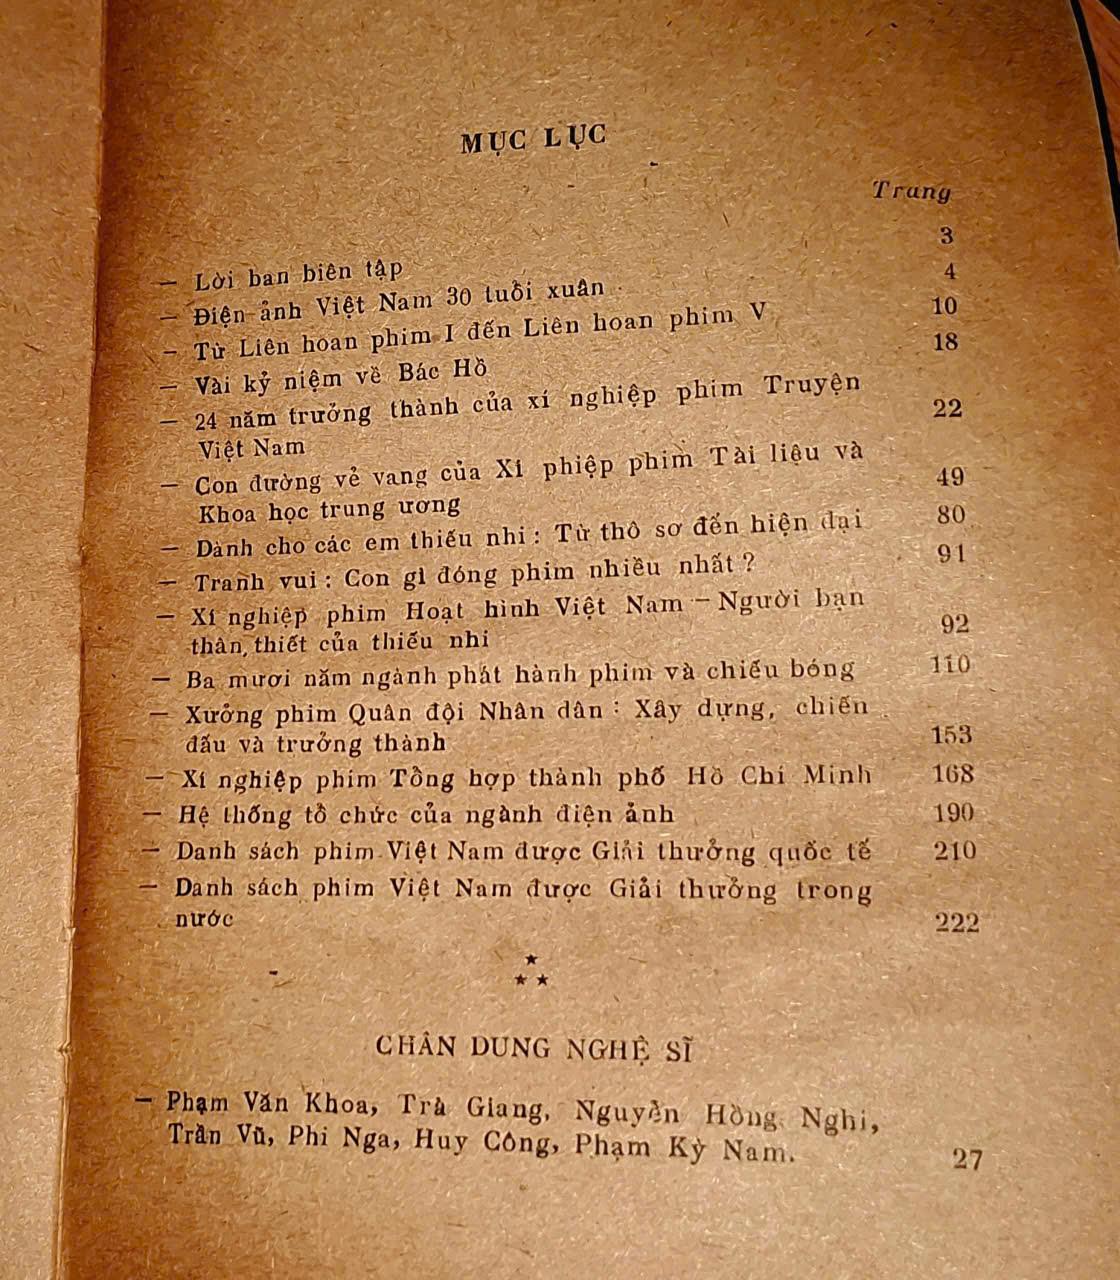 MỤC LỤC
Trang
— Lời ban biên tập 3
— Điện ảnh Việt Nam 30 tuổi xuân 4
— Từ Liên hoan phim I đến Liên hoan phim V 10
— Vài kỷ niệm về Bác Hồ 18
— 24 năm trưởng thành của xí nghiệp phim Truyện
Việt Nam 22
— Con đường vẻ vang của Xí phiệp phim Tài liệu và
Khoa học trung ương 49
— Dành cho các em thiếu nhi : Từ thô sơ đến hiện đại 80
— Tranh vui : Con gì đóng phim nhiều nhất ? 91
— Xí nghiệp phim Hoạt hình Việt Nam — Người bạn
thân thiết của thiếu nhi 92
— Ba mươi năm ngành phát hành phim và chiếu bóng 110
— Xưởng phim Quân đội Nhân dân : Xây dựng, chiến
đấu và trưởng thành 153
— Xí nghiệp phim Tổng hợp thành phố Hồ Chí Minh 168
— Hệ thống tổ chức của ngành điện ảnh 190
— Danh sách phim Việt Nam được Giải thưởng quốc tế 210
— Danh sách phim Việt Nam được Giải thưởng trong
nước 222
CHÂN DUNG NGHỆ SĨ
— Phạm Văn Khoa, Trà Giang, Nguyễn Hồng Nghi,
Trần Vũ, Phi Nga, Huy Công, Phạm Kỳ Nam. 27